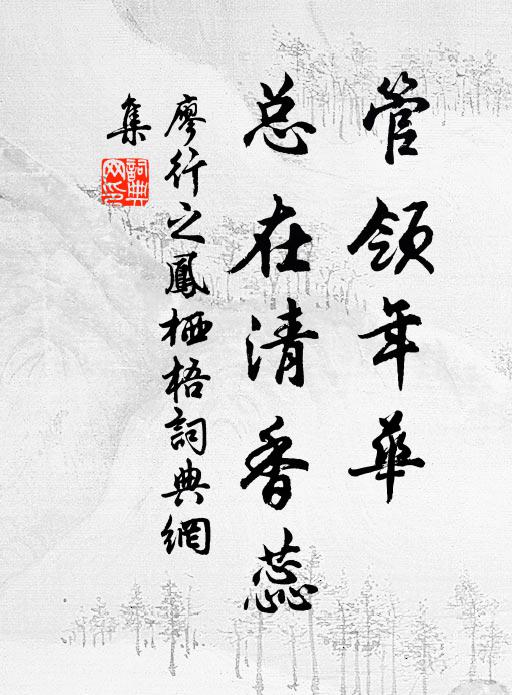 管领年华
总在清香蕊
廖行之鳳栖梧詞典網
集
詞典網印